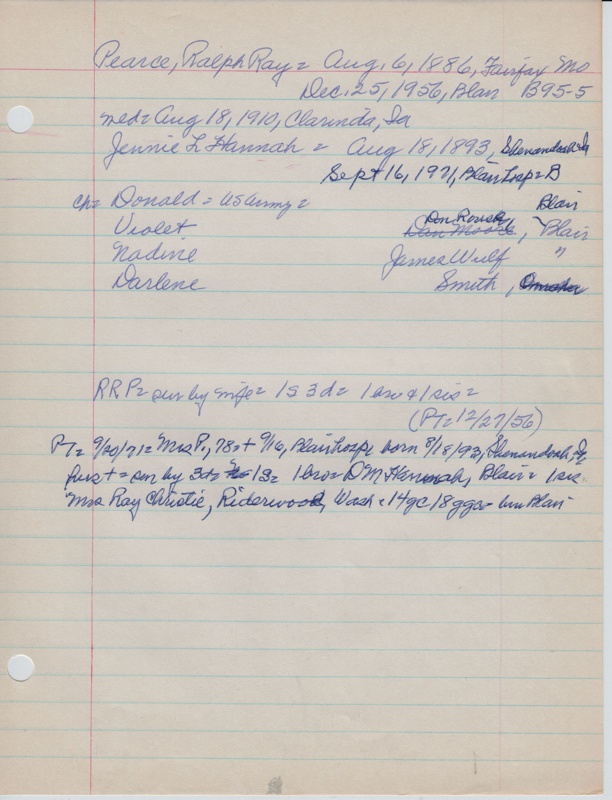 Pearce, Ralph Ray = Aug. 6, 1886, Fairfax Mo
Dec. 25, 1956, Blair B95-5
med = Aug 18, 1910, Clarinda, Ia
Jennie L Hannah = Aug 18, 1893, Shenandoah Ia
Sept 16, 1971, Blair Hosp = B
ch = Donald = US Army = Blair
Violet Don Rousk, Blair
Nadine James Wulf "
Darlene Smith, Omaha
RRP = sur by wife = 1S 3d = 1 bro & 1 sis =
(PT = 12/27/56)
PT = 9/20/71 = Mrs P., 78 = + 9/16, Blair Hosp, born 8/18/93, Shenandoah, Ia
sur by 3d = 1S = 1 bro = D M Hannah, Blair = 1 sis =
Mrs Ray Christie, Riderwood, Wash = 14gc 18ggc = Blair